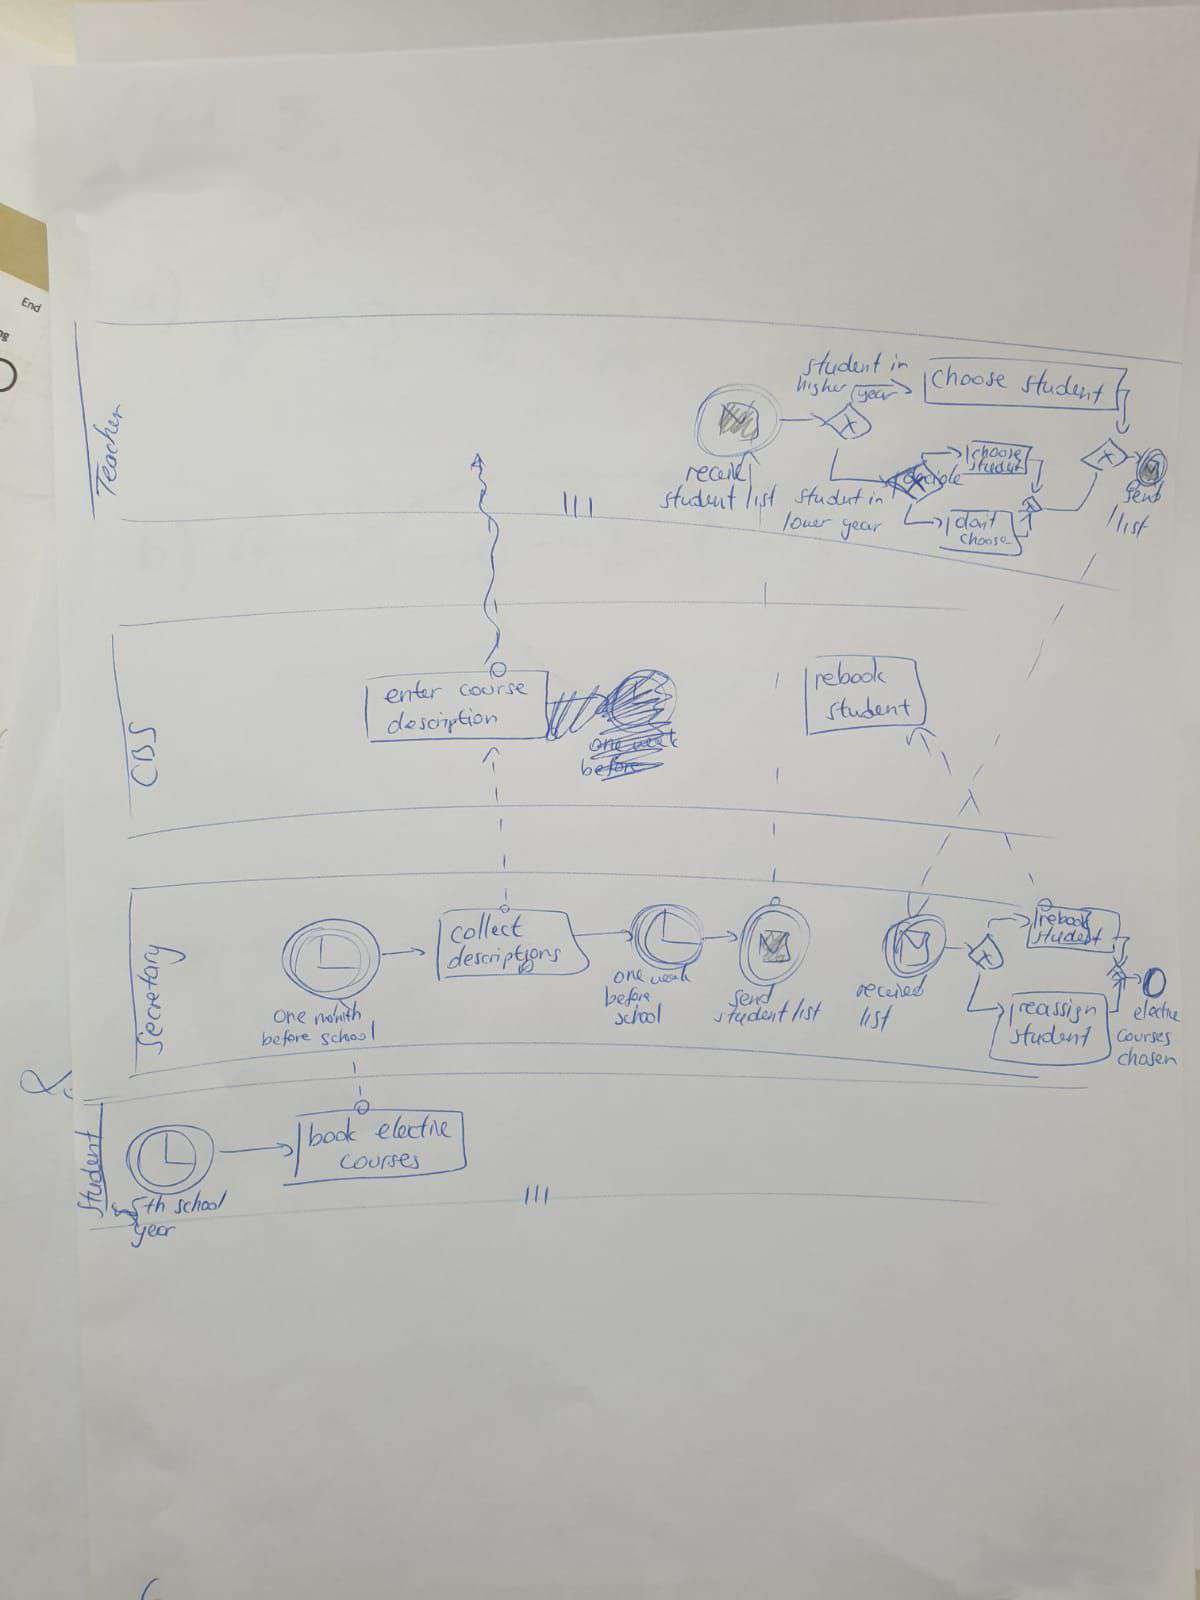 End
Teacher
student in
higher year
choose student
receive
student list
student in
lower year
decide
choose
student
don't
choose
send
list
CBS
enter course
description
one week
before
rebook
student
Secretary
one month
before school
collect
descriptions
one week
before
school
send
student list
received
list
rebook
student
reassign
student
elective
courses
chosen
Student
5th school
year
book elective
courses